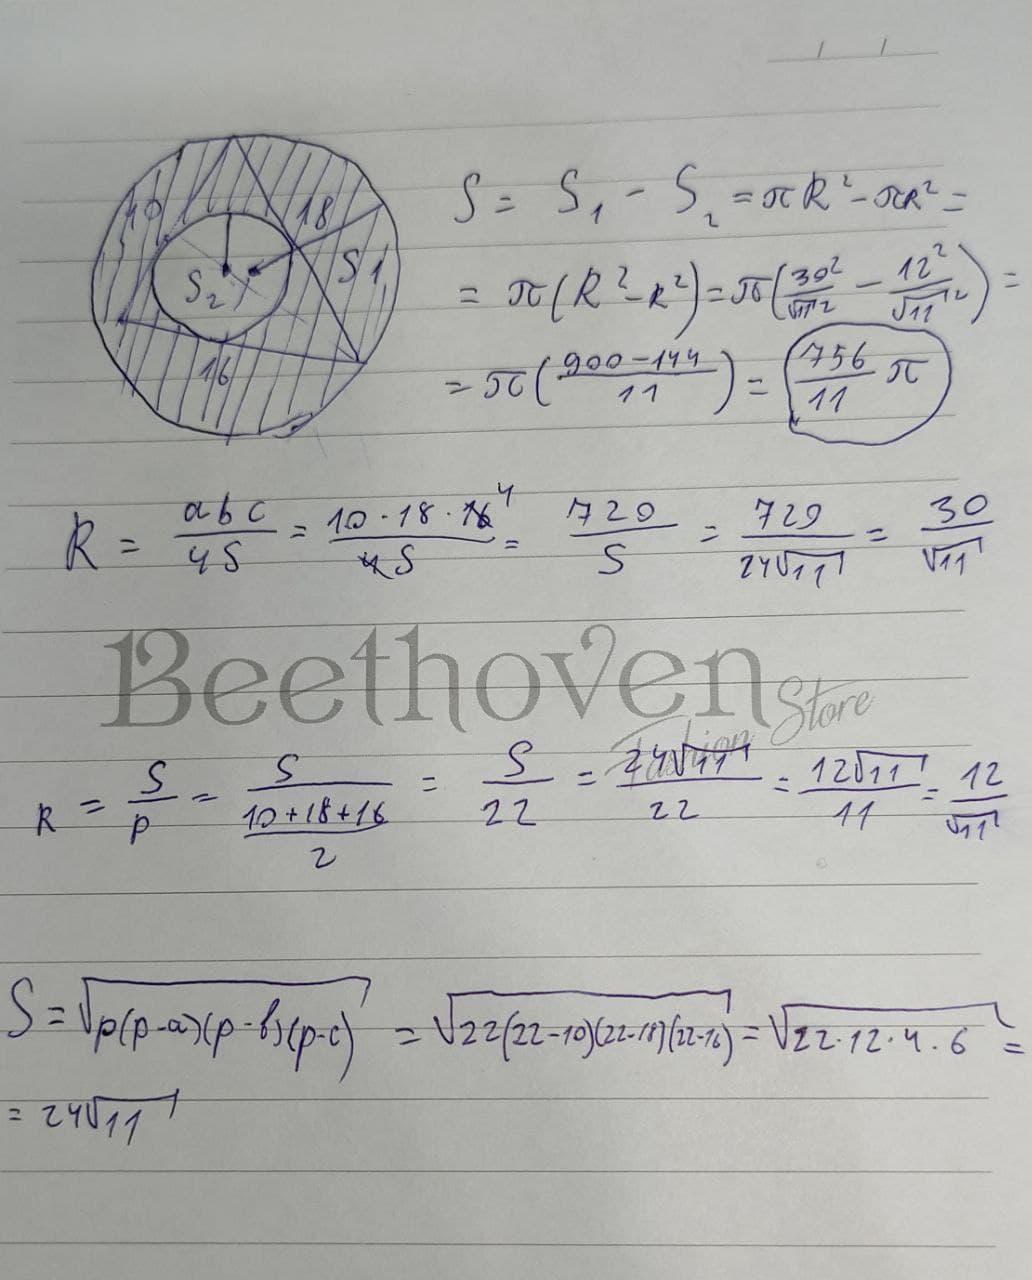 10
18
S1
S₂
16
S = S₁ - S₂ = πR² - πR² =
= π(R² - R²) = π(30²/√11² - 12²/√11²) =
= π(900-144/11) = 756/11 π
R = abc/4S = 10·18·16 4/4S = 720/S = 720/24√11 = 30/√11
Beethoven
Fashion Store
R = S/p = S/(10+18+16/2) = S/22 = 24√11/22 = 12√11/11 = 12/√11
S = √p(p-a)(p-b)(p-c) = √22(22-10)(22-18)(22-16) = √22·12·4·6 =
= 24√11